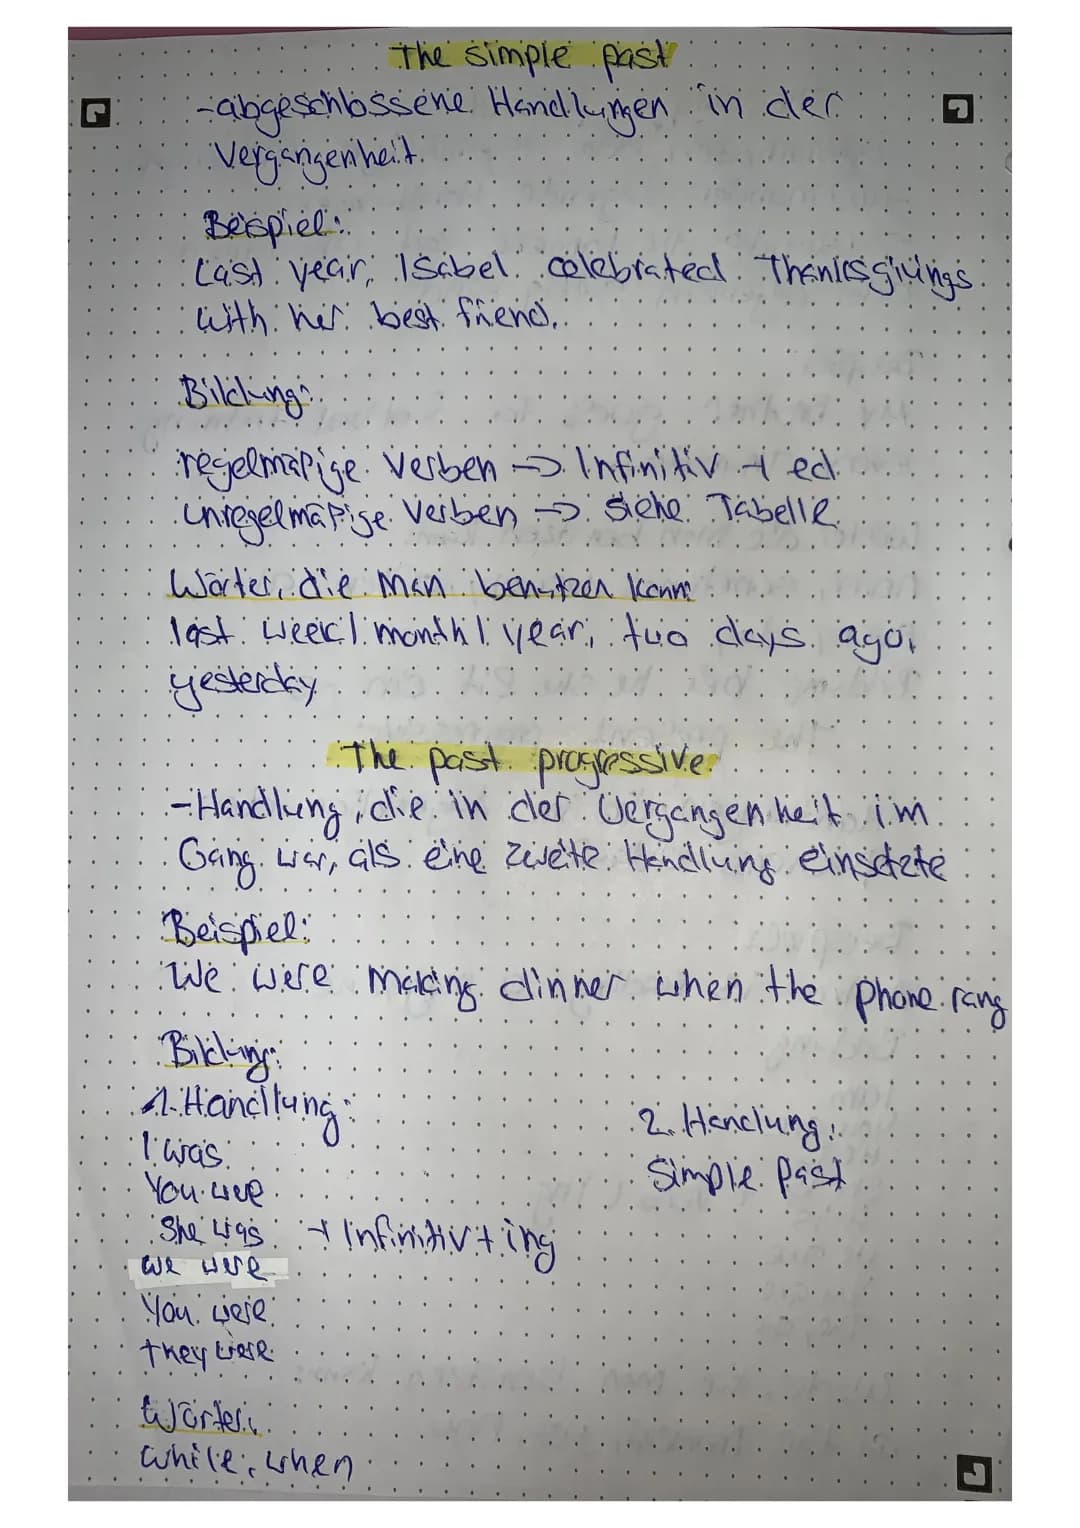 The simple past
-abgeschlossene Handlungen in der
Vergangenheit.
Beispiel:
Last year, Isabel celebrated Thanksgivings
with her best friend.
Bildung:
regelmäßige Verben → Infinitiv + ed
unregelmäßige Verben → siehe Tabelle
Wörter, die man benutzen kann
last week/month/year, two days ago,
yesterday
The past progressive
-Handlung, die in der Vergangenheit im
Gang war, als eine zweite Handlung einsetzte
Beispiel:
We were making dinner when the phone rang
Bildung:
1. Handlung:
2. Handlung:
I was
Simple past
You were
She was + Infinitiv + ing
we were
You were
they were
Wörter:
while, when